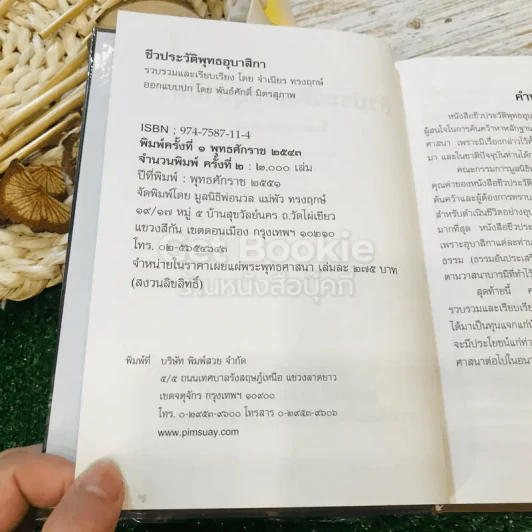 ชีวประวัติพุทธอุบาสิกา
รวบรวมและเรียบเรียง โดย จำเนียร ทรงฤกษ์
ออกแบบปก โดย พันธ์ศักดิ์ มิตรสุภาพ
ISBN : 974-7587-11-4
พิมพ์ครั้งที่ ๑ พุทธศักราช ๒๕๔๓
จำนวนพิมพ์ ครั้งที่ ๒ : ๒,๐๐๐ เล่ม
ปีที่พิมพ์ : พุทธศักราช ๒๕๕๑
จัดพิมพ์โดย มูลนิธิพ่อนวล แม่พัว ทรงฤกษ์
๑๙/๑๗ หมู่ ๕ บ้านสุขวัลย์นคร ถ.วัดไผ่เขียว
แขวงสีกัน เขตดอนเมือง กรุงเทพฯ ๑๐๒๑๐
โทร. ๐๒-๕๖๕๔๖๔๓
จำหน่ายในราคาเผยแผ่พระพุทธศาสนา เล่มละ ๒๗๕ บาท
(สงวนลิขสิทธิ์)
พิมพ์ที่ บริษัท พิมพ์สวย จำกัด
๕/๕ ถนนเทศบาลรังสฤษฎ์เหนือ แขวงลาดยาว
เขตจตุจักร กรุงเทพฯ ๑๐๙๐๐
โทร. ๐-๒๙๕๓-๙๖๐๐ โทรสาร ๐-๒๙๕๓-๙๖๐๖
www.pimsuay.com
Bookie
ร้านหนังสือบุ๊คกี้
หนังสือชีวประวัติพุทธอุบา
ผู้สนใจในการค้นคว้าหาหลักฐาน
ศาสนา เพราะมีเรื่องกล่าวไว้ทั้
นา และในชาติปัจจุบันท่านได้
คณะกรรมการมูลนิธิ
คุณค่าของหนังสือชีวประวัติพุทธอุ
ค้นคว้าและผู้ต้องการทราบ
สำหรับดำเนินชีวิตอย่าง
มากที่สุด หนังสือชีวประ
เพราะอุบาสิกาแต่ละท่าน
ธรรม (ธรรมอันประเสริ
ตามวาสนาบารมีที่ทำไว้
สุดท้ายนี้
รวบรวมและเรียบเรียง
ได้มาเป็นทุนแจกแก่
จะมีประโยชน์แก่ท่า
ศาสนาต่อไปในอนา